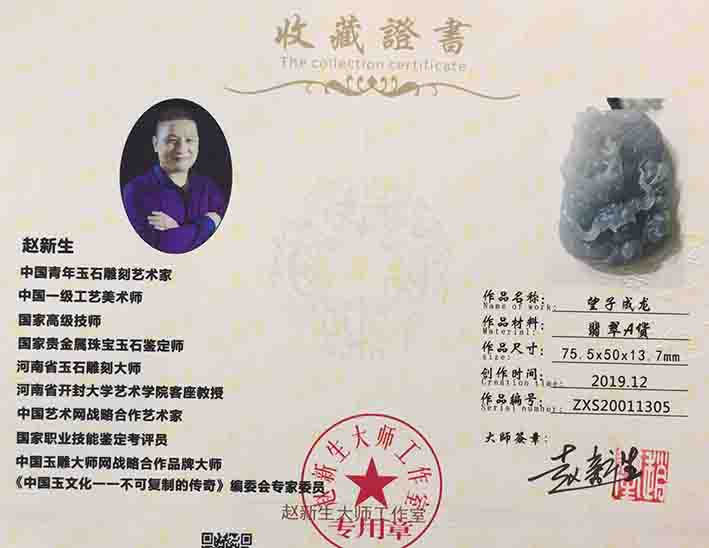 收藏證書
The collection certificate
赵新生
中国青年玉石雕刻艺术家
中国一级工艺美术师
国家高级技师
国家贵金属珠宝玉石鉴定师
河南省玉石雕刻大师
河南省开封大学艺术学院客座教授
中国艺术网战略合作艺术家
国家职业技能鉴定考评员
中国玉雕大师网战略合作品牌大师
《中国玉文化一一不可复制的传奇》编委会专家委员
作品名称: 望子成龙
Name of work:
作品材料: 翡翠A货
Material:
作品尺寸: 75.5x50x13.7mm
size:
创作时间: 2019.12
Creation time:
作品编号: ZXS20011305
Serial number:
大师签章:
赵新生
赵新生大师工作室
赵新生大师工作室
专用章